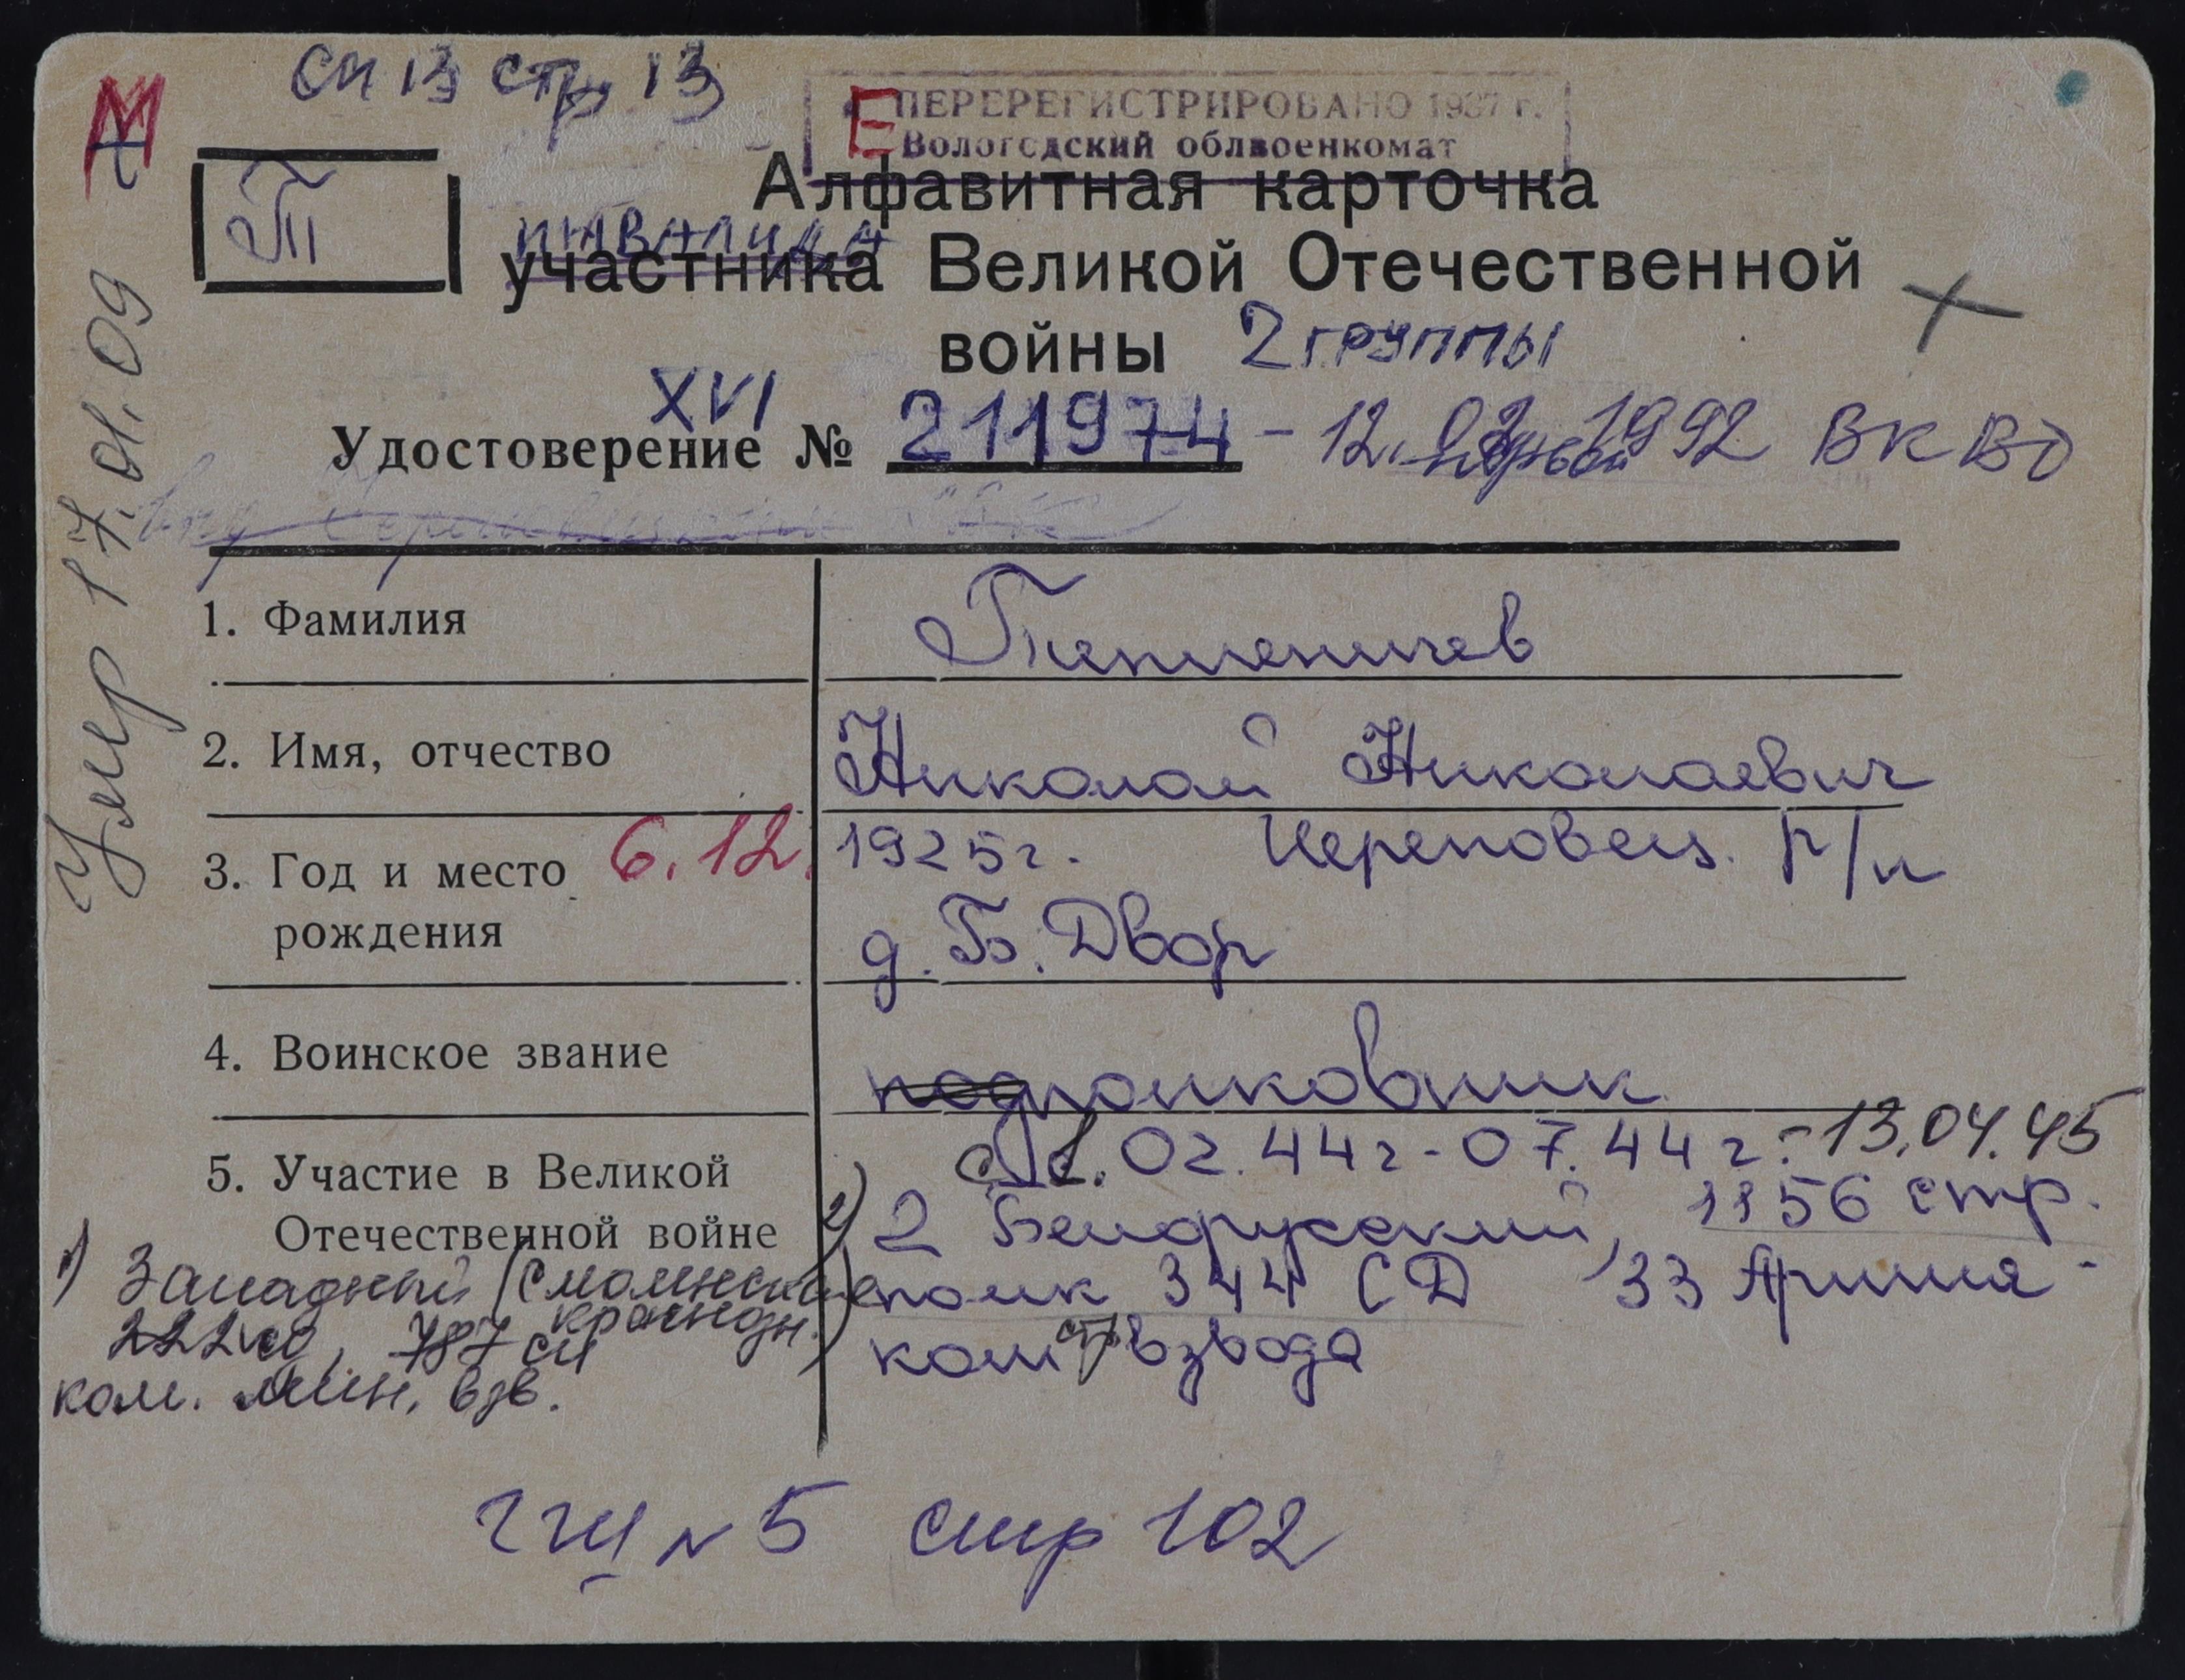 М
сп 13 стр 13
Е
ПЕРЕРЕГИСТРИРОВАНО 1987 г.
Вологодский облвоенкомат
Алфавитная карточка
инвалида
участника Великой Отечественной
войны 2 группы
XVI
Удостоверение № 211974 - 12. 1992 ВК ВО
Умер 17.01.09
1. Фамилия
2. Имя, отчество Николай Николаевич
3. Год и место рождения 6.12. 1925г. Череповец. р/н
д. Б. Двор
4. Воинское звание подполковник
5. Участие в Великой Отечественной войне
02.44г - 07.44г - 13.04.45
2) 2 Белорусский, 1156 стр.
полк 344 СД 33 Армия -
ком взвода
1) Западный (Смоленск
краснозн.)
222 сд, 787 сп
ком. мин. взв.
№ 5 стр 102